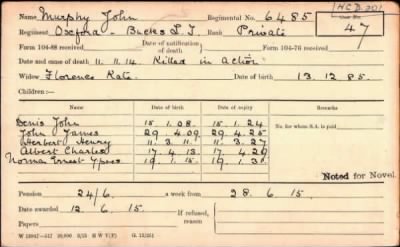 HCD 301
Name Murphy John Regimental No. 6485
Regiment Oxford & Bucks L.I. Rank Private 47
Form 104-88 received Date of notification of death Form 104-76 received
Date and cause of death 11. 11. 14. Killed in Action
Widow Florence Kate. Date of birth 13. 12. 85
Children:—
Name Date of birth Date of expiry Remarks
Denis John 15. 1. 08. 15. 1. 24 No. for whom S.A. is paid
John James 29. 4. 09 29. 4. 25
Herbert Henry 11. 3. 11. 11. 3. 27
Albert Charles 17. 4. 13 17. 4. 29
Norma Ernest Ypres 19. 1. 15 19. 1. 31
Noted for Novel.
Pension 24/6 a week from 28. 6. 15.
Date awarded 12. 6. 15. If refused, reason
Papers